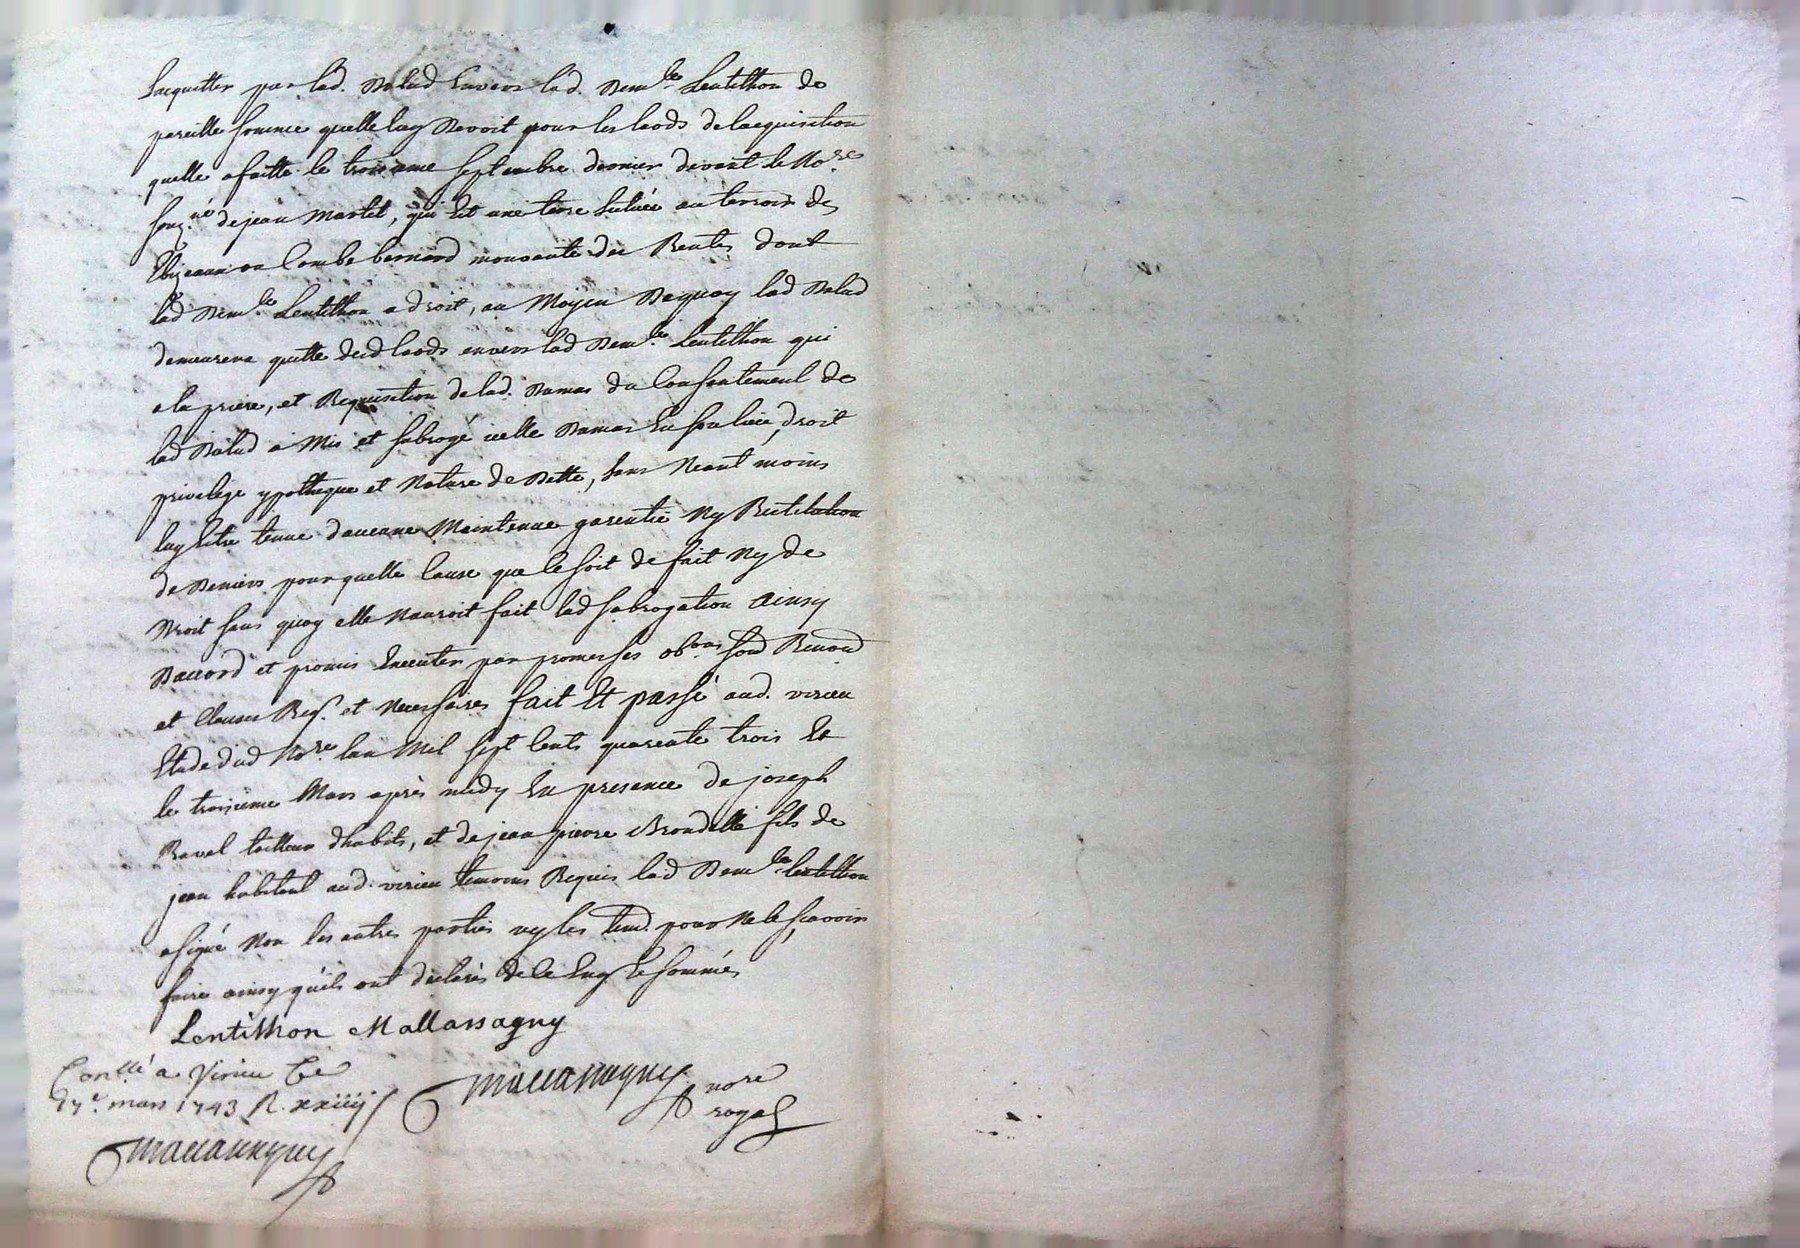 sacquitter par lad. Balud envers lad. Dem.lle Lentilhon de
pareille somme quelle luy Devoit pour les laods de lacquisition
quelle a faitte le troisieme septembre dernier devant le No.re
souz.né de jean Martel, qui Est une terre Située au terroir des
ou Combe bernard mouvante des Rentes dont
lad Dem.lle Lentilhon a droit, au Moyen Dequoy lad Balud
demeurera quitte desd laods envers lad Dem.lle Lentilhon qui
a la priere, et Requisition de lad. Damas du Consentement de
lad Balud a Mis et subrogé icelle Damas En son lieu, droit
privilege ypotheque et Nature de Dette, sans Neant moins
luy Estre tenue daucune Maintenue garentie Ny Restitution
de Deniers pour quelle Cause que ce soit de fait Ny de
Droit sans quoy elle Nauroit fait lad subrogation ainsy
Daccord et promis Executer par promesses ob.ons soud Renond
et Clauses Req. et Necessaires fait Et passé aud. virieu
Etude dud No.re lan Mil sept Cents quarente trois Et
le troisieme Mars après midy En presence de joseph
Ravel tailleur dhabits, et de jean pierre Brondelle fils de
jean habitant aud. virieu temoins Requis lad Dem.lle lentilhon
a signé Non les autres parties ny les tem. pour Ne le sçavoir
faire ainsy quils ont declarés de ce Enq.s Et sommés
Lentilhon Mallassagny
Con.llé a Virieu Ce
mars 1743 R. xxiiij s
Mallassagny no.re
royal
Mallassagny